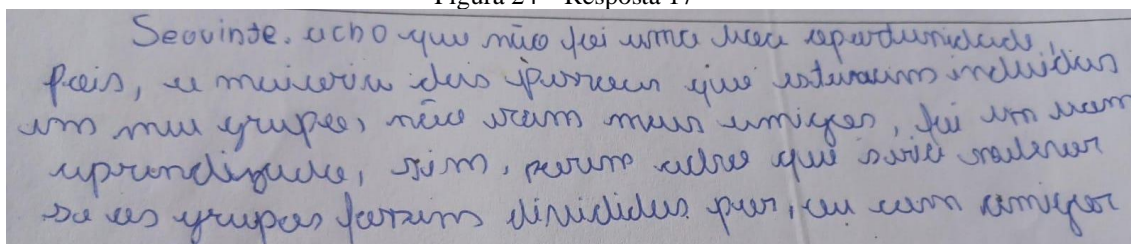 Figura 24 – Resposta 17
Seguinte. acho que não foi uma boa oportunidade,
pois, a maioria das pessoas que estavam incluídas
em meu grupo, não eram meus amigos, foi um bom
aprendizado, sim, porém acho que seria melhor
se os grupos fossem divididos por, eu com amigos